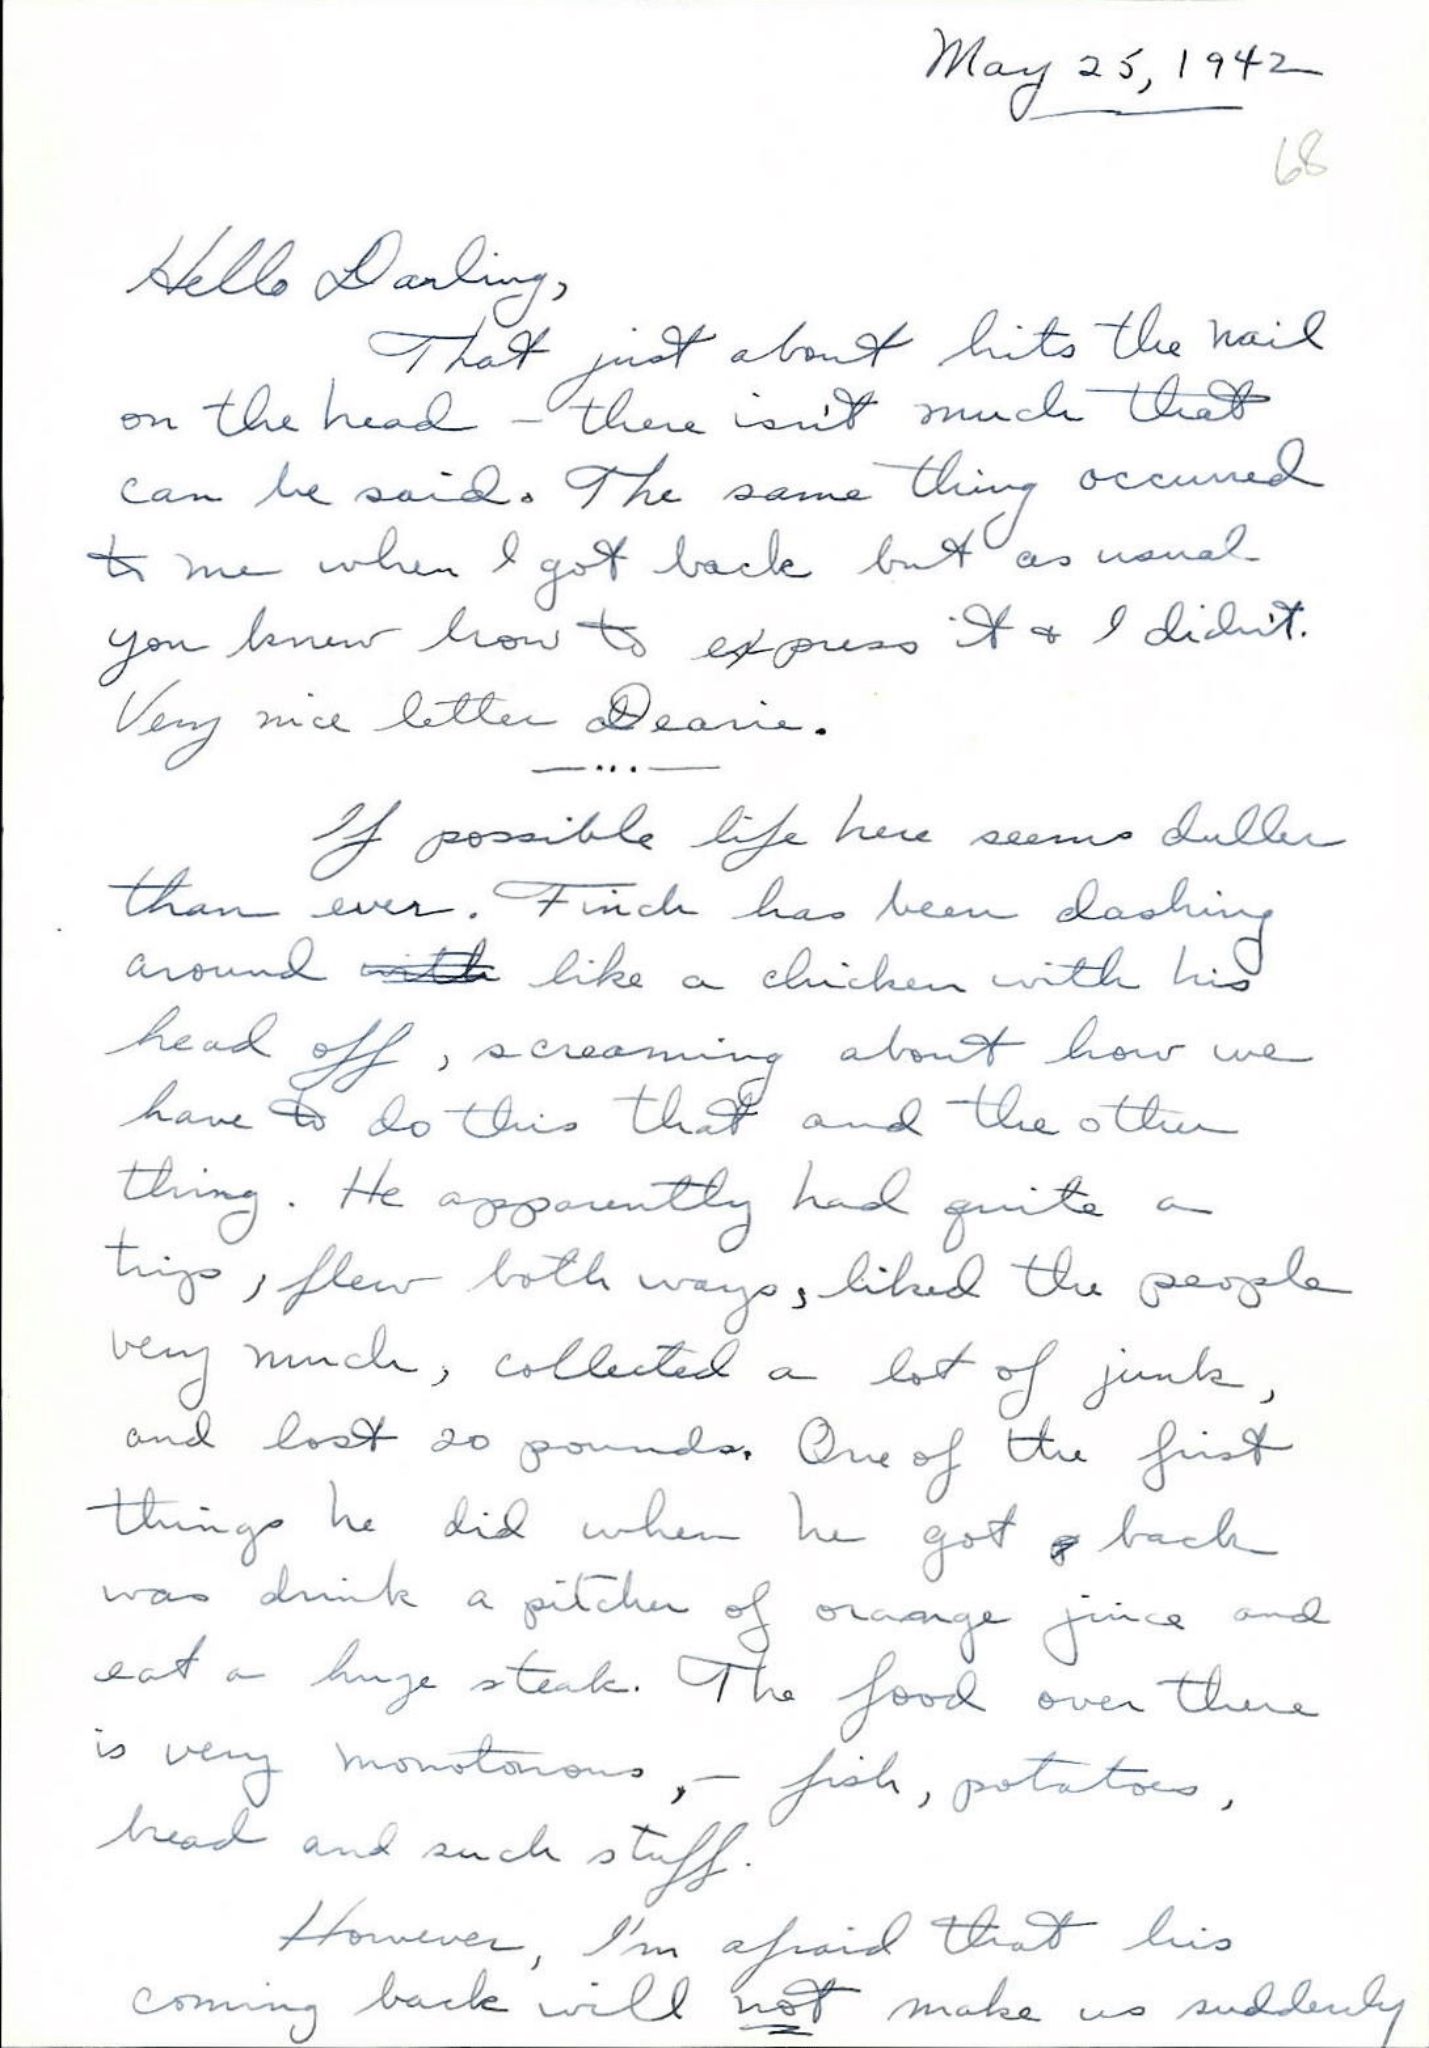 May 25, 1942
68
Hello Darling,
That just about hits the nail
on the head — there isn't much that
can be said. The same thing occurred
to me when I got back but as usual
you knew how to express it & I didn't.
Very nice letter Dearie.
—...—
If possible life here seems duller
than ever. Finch has been dashing
around with like a chicken with his
head off, screaming about how we
have to do this that and the other
thing. He apparently had quite a
trip, flew both ways, liked the people
very much, collected a lot of junk,
and lost 20 pounds. One of the first
things he did when he got back
was drink a pitcher of orange juice and
eat a huge steak. The food over there
is very monotonous, — fish, potatoes,
bread and such stuff.
However, I'm afraid that his
coming back will not make us suddenly